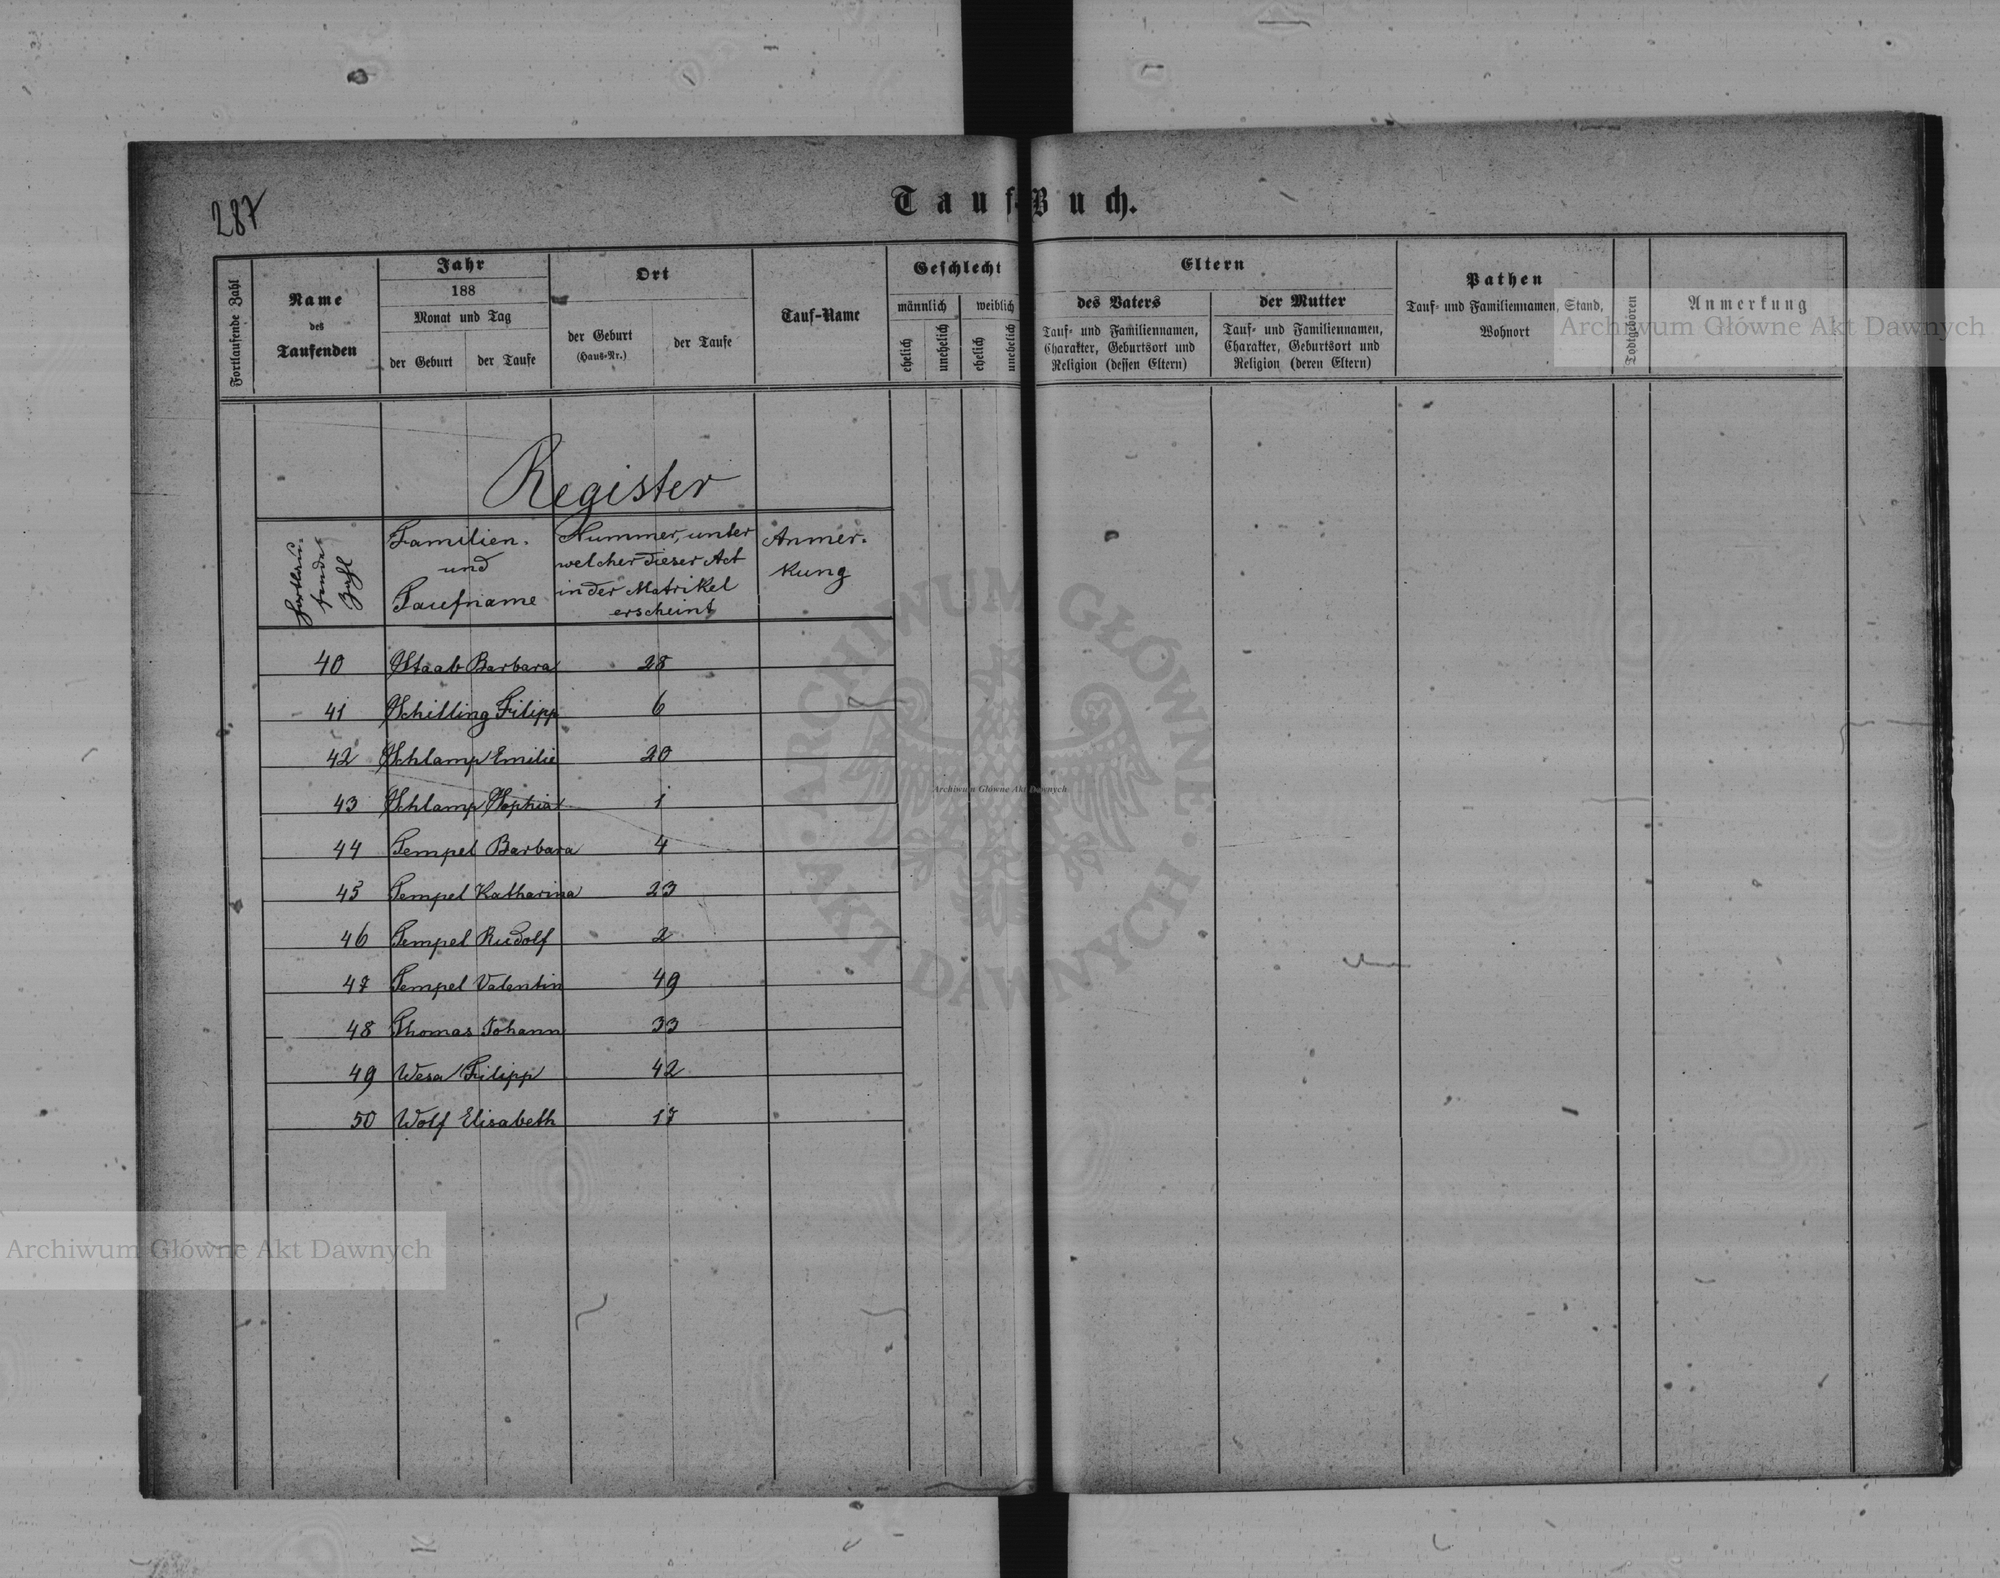 287
Tauf-Buch.
Fortlaufende Zahl
Name
des
Taufenden
Jahr
188
Monat und Tag
der Geburt
der Taufe
Ort
der Geburt
(Haus-Nr.)
der Taufe
Tauf-Name
Geschlecht
männlich
weiblich
ehelich
unehelich
ehelich
unehelich
Eltern
des Vaters
Tauf- und Familiennamen,
Charakter, Geburtsort und
Religion (dessen Eltern)
der Mutter
Tauf- und Familiennamen,
Charakter, Geburtsort und
Religion (deren Eltern)
Pathen
Tauf- und Familiennamen, Stand,
Wohnort
Todtgeboren
Anmerkung
Archiwum Główne Akt Dawnych
Register
Fortlau-
fende
Zahl
Familien-
und
Taufname
Nummer, unter
welcher dieser Act
in der Matrikel
erscheint
Anmer-
kung
40 Staab Barbara 28
41 Schilling Filipp 6
42 Schlamp Emilie 20
43 Schlamp Sophia 1
44 Tempel Barbara 4
45 Tempel Katharina 23
46 Tempel Rudolf 2
47 Tempel Valentin 49
48 Thomas Johann 33
49 Wesa Filipp 42
50 Wolf Elisabeth 17
ARCHIWUM GŁÓWNE · AKT DAWNYCH ·
Archiwum Główne Akt Dawnych
Archiwum Główne Akt Dawnych